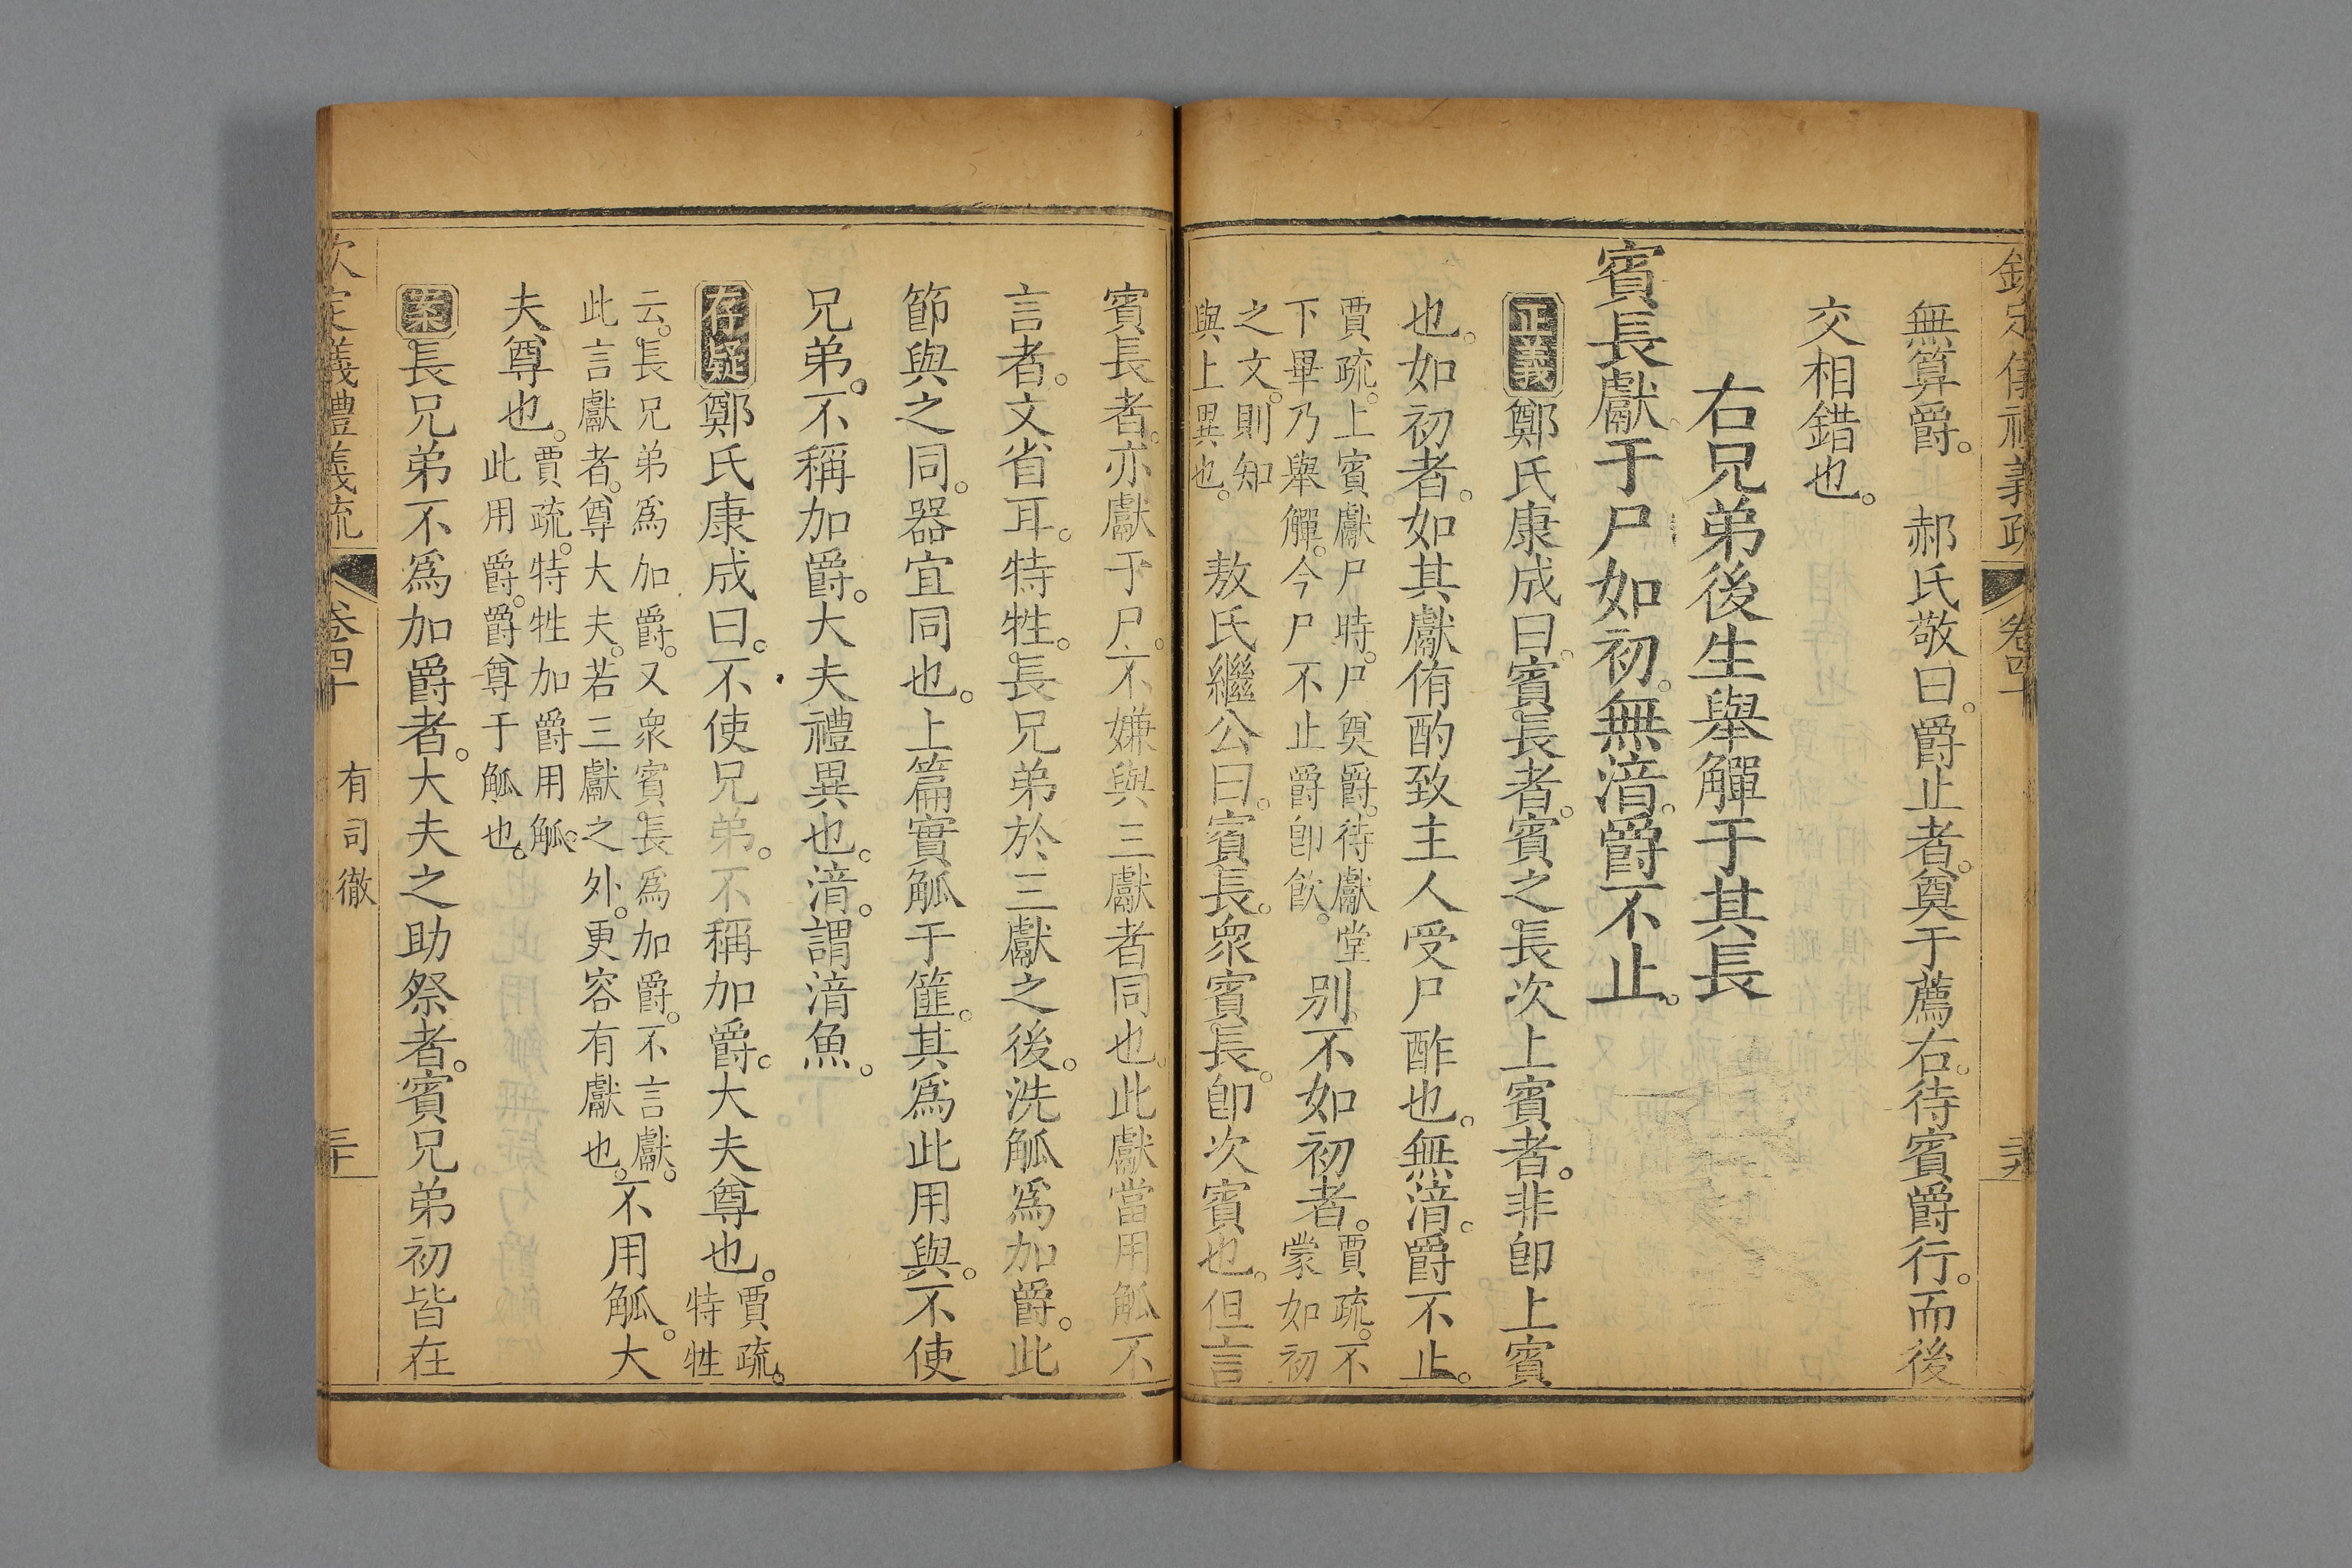 欽定儀禮義疏
卷四十
無算爵。　郝氏敬曰。爵止者。奠于薦右。待賓爵行。而後
交相錯也。
右兄弟後生舉觶于其長
賓長獻于尸如初。無湆。爵不止。
正義鄭氏康成曰。賓長者。賓之長次上賓者。非卽上賓
也。如初者。如其獻侑酌致主人受尸酢也。無湆。爵不止。
賈疏。上賓獻尸時。尸奠爵。待獻堂
下畢乃舉觶。今尸不止爵卽飮。
別。不如初者。
賈疏。不
蒙如初
之文。則知
與上異也。
敖氏繼公曰。賓長。衆賓長。卽次賓也。但言
賓長者。亦獻于尸。不嫌與三獻者同也。此獻當用觚不
言者。文省耳。特牲。長兄弟於三獻之後。洗觚爲加爵。此
節與之同。器宜同也。上篇實觚于篚。其爲此用與。不使
兄弟。不稱加爵。大夫禮異也。湆。謂湆魚。
存疑鄭氏康成曰。不使兄弟。不稱加爵。大夫尊也。
賈疏。
特牲
云。長兄弟爲加爵。又衆賓長爲加爵。不言獻。
此言獻者。尊大夫。若三獻之外。更容有獻也。
不用觚。大
夫尊也。
賈疏。特牲加爵用觚。
此用爵。爵尊于觚也。
案長兄弟不爲加爵者。大夫之助祭者。賓兄弟初皆在
欽定儀禮義疏
卷四十
有司徹
三十